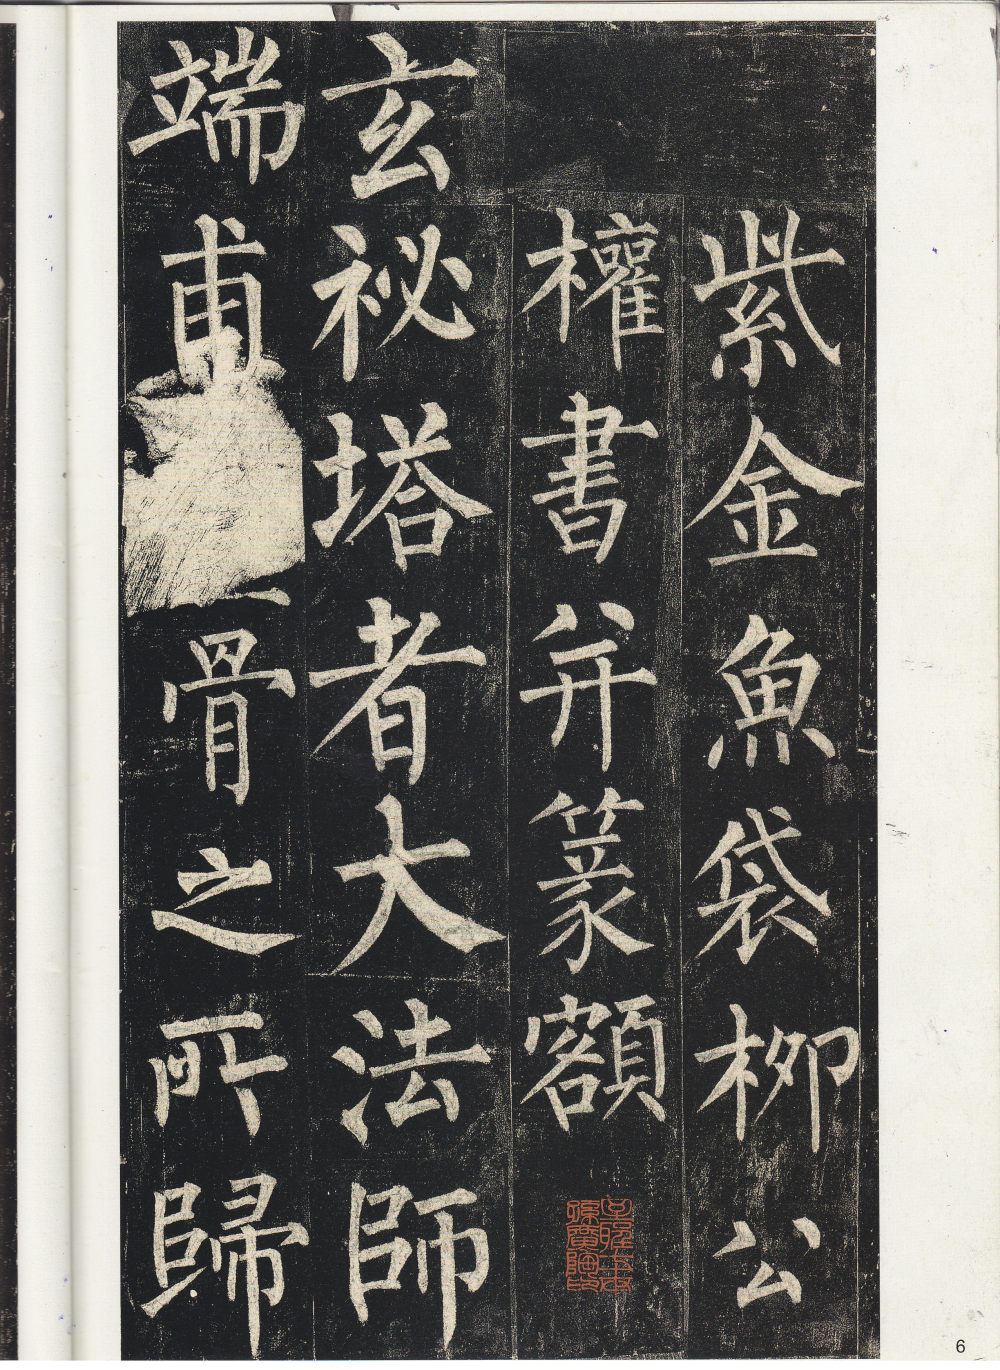 紫金魚袋柳公
權書并篆額
玄祕塔者大法師
端甫骨之所歸
6